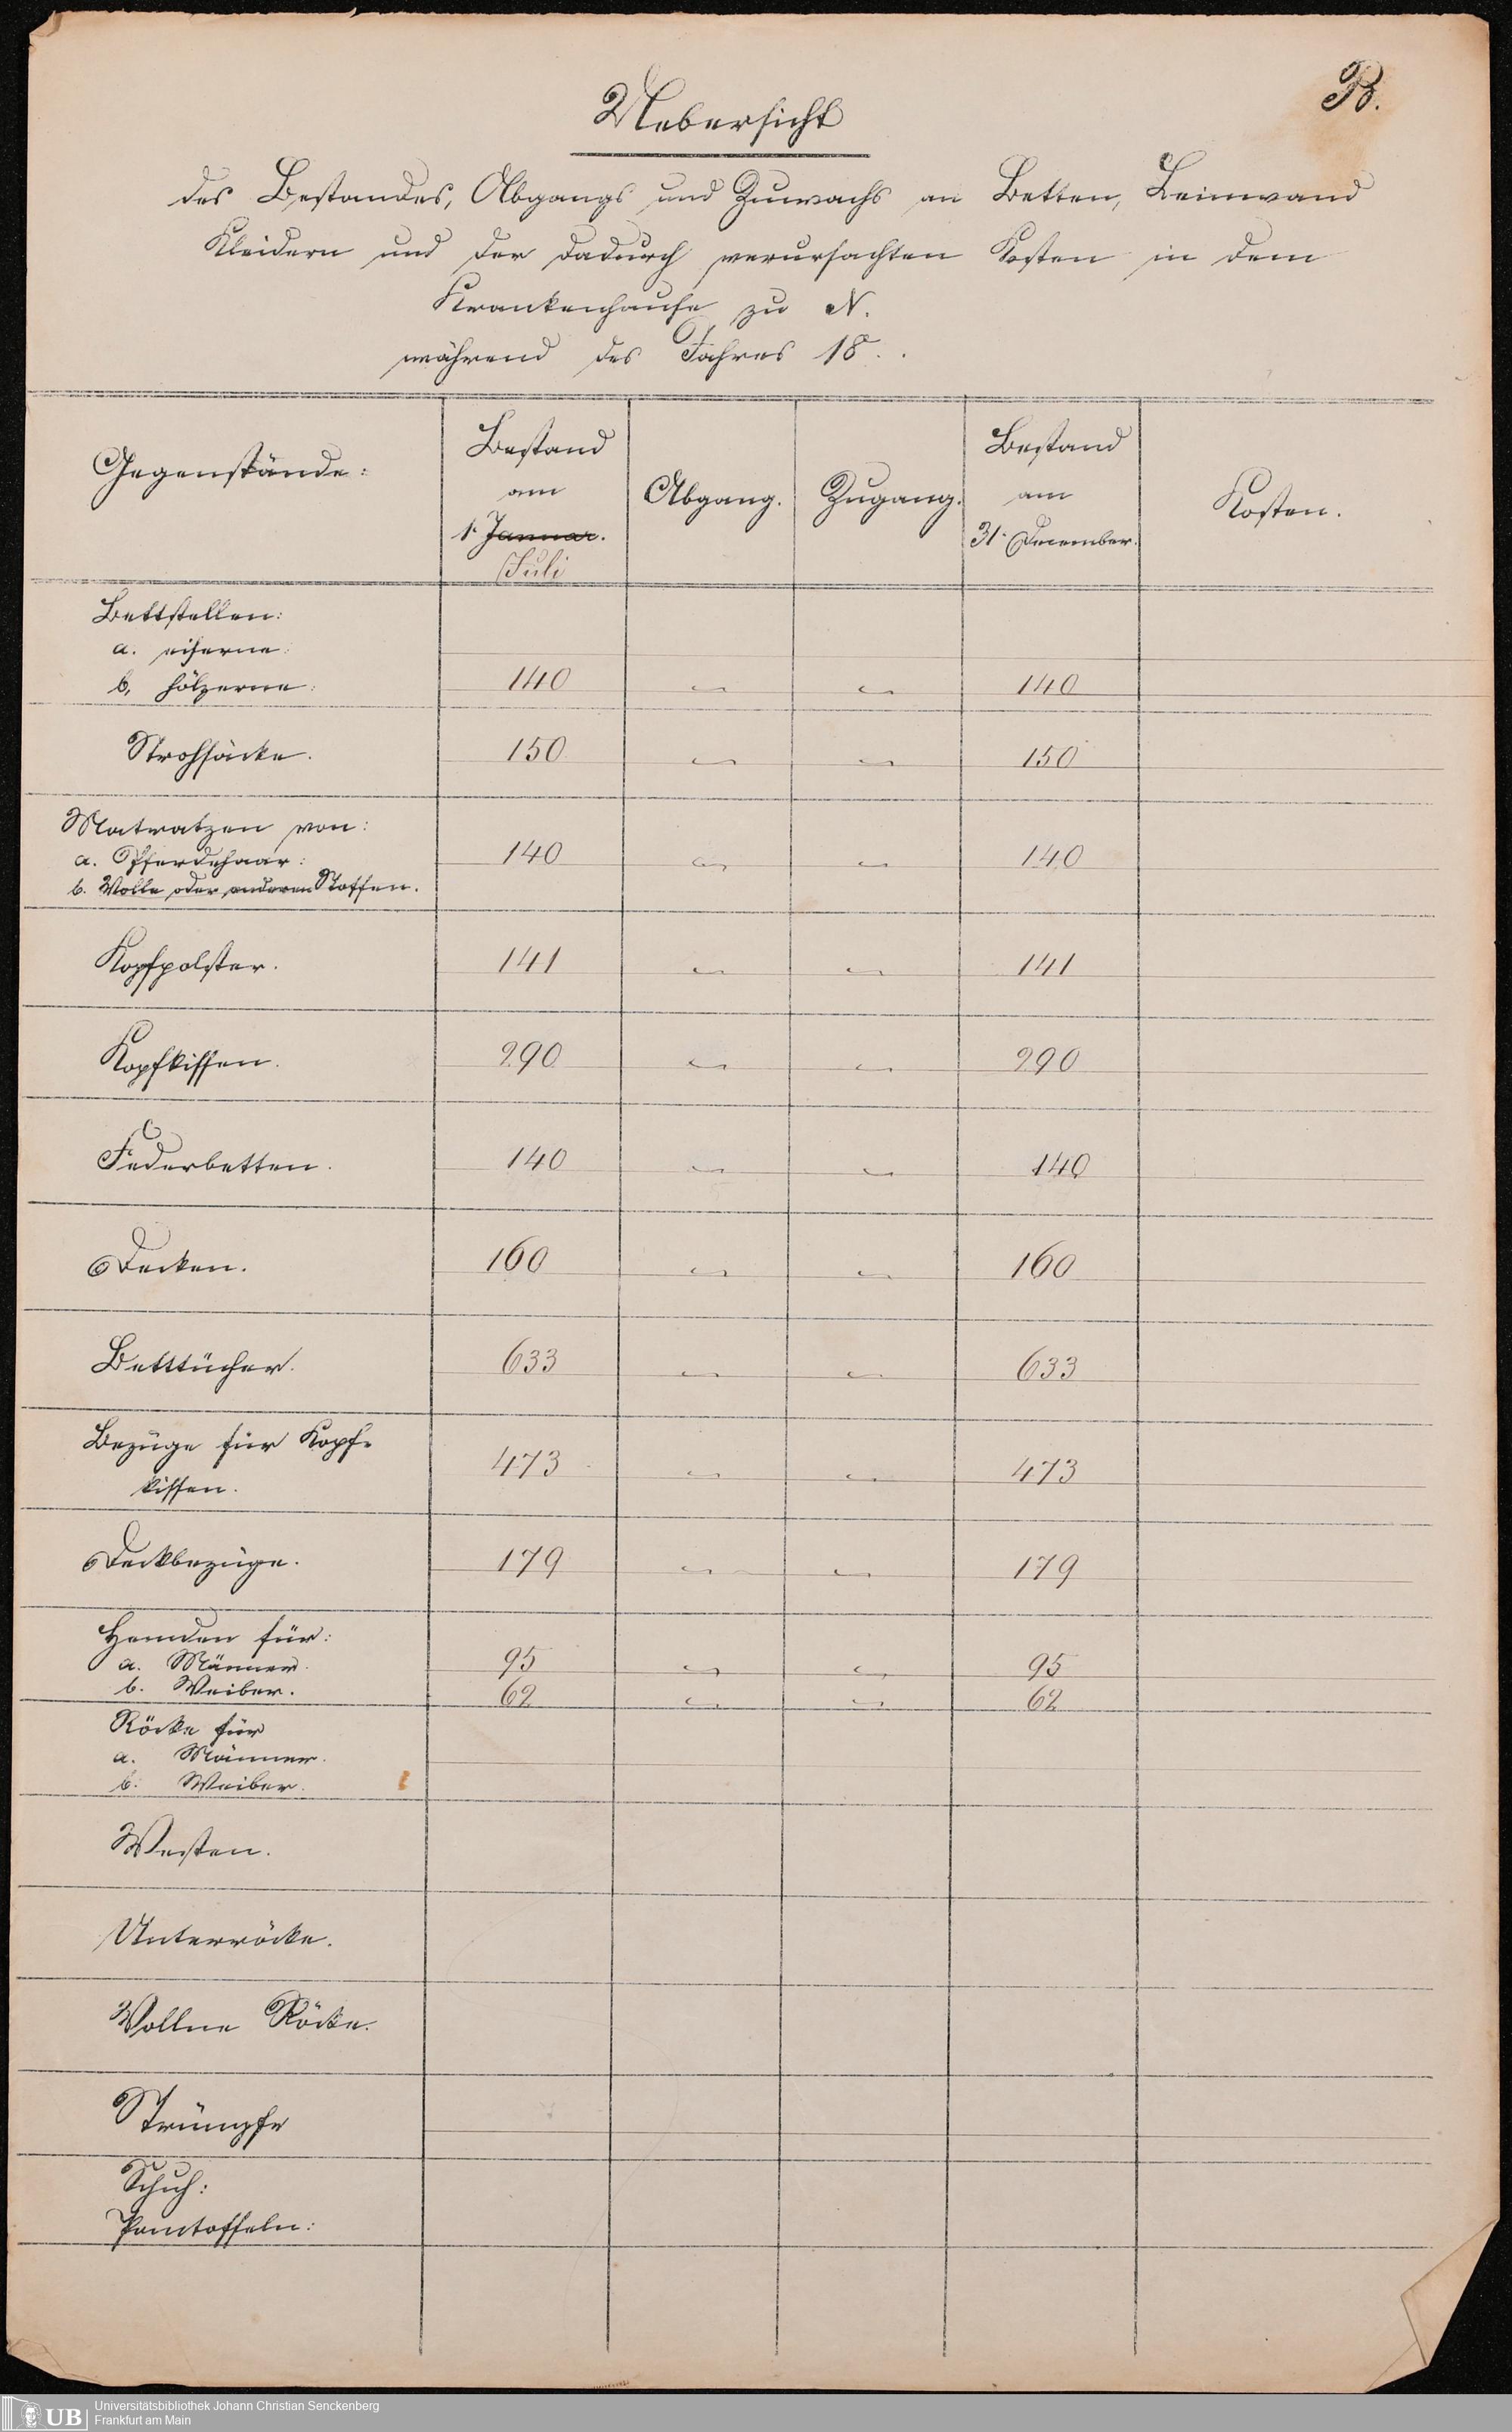 B.
Uebersicht
des Bestandes, Abgangs und Zuwachs an Betten, Leinwand
Kleidern und der dadurch verursachten Kosten in dem
Krankenhause zu N.
während des Jahres 18 . .
Gegenstände: Bestand am 1. Januar. Juli Abgang. Zugang. Bestand am 31. December. Kosten.
Bettstellen:
a. eiserne:
b. hölzerne: 140 — — 140
Strohsäcke. 150 — — 150
Matratzen von:
a. Pferdehaar: 140 — — 140
b. Wolle oder anderen Stoffen.
Kopfpolster. 141 — — 141
Kopfkissen. 290 — — 290
Federbetten. 140 — — 140
Decken. 160 — — 160
Betttücher. 633 — — 633
Bezüge für Kopf-
kissen. 473 — — 473
Deckbezüge. 179 — — 179
Hemden für:
a. Männer. 95 — — 95
b. Weiber. 62 — — 62
Röcke für
a. Männer.
b. Weiber.
Westen.
Unterröcke.
Wollne Röcke.
Strümpfe
Schuh:
Pantoffeln:
UB Universitätsbibliothek Johann Christian Senckenberg
Frankfurt am Main